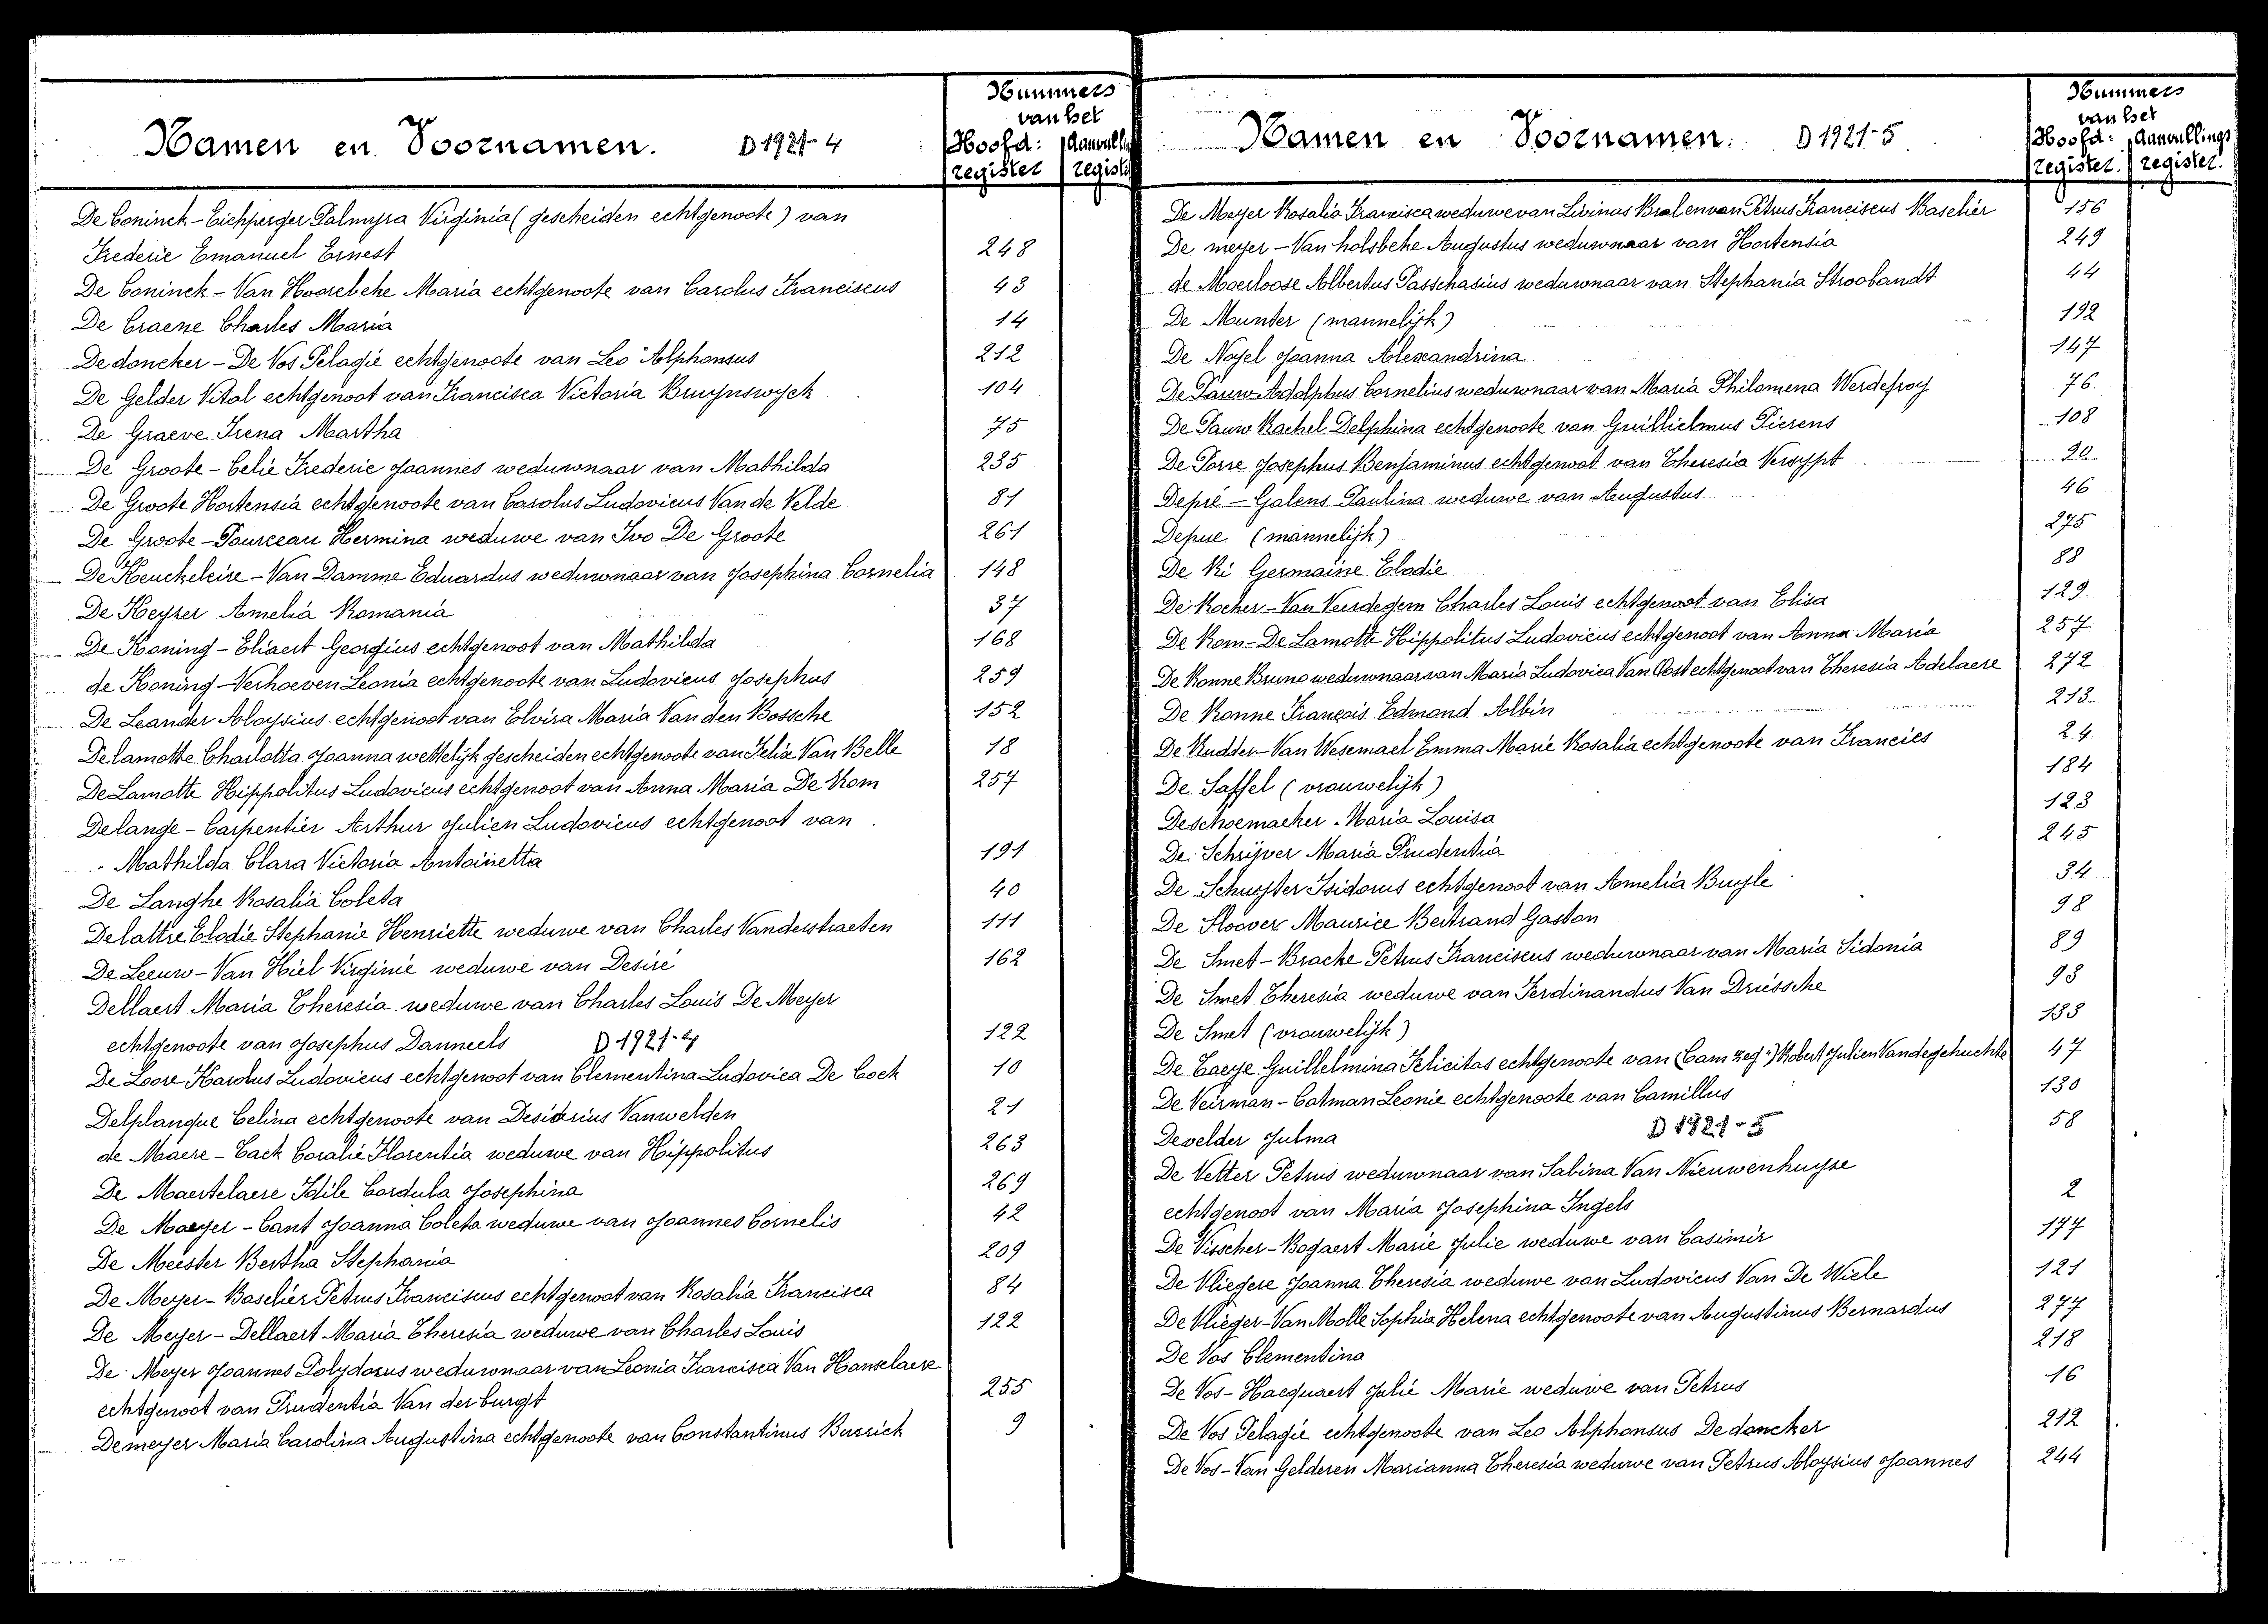 Nummers
van het
Namen en Voornamen. D 1921-4
Hoofd: Aanvulli
register registe
De Coninck-Eichperger Palmyra Virginia (gescheiden echtgenoote) van
Frederic Emanuel Ernest 248
De Coninck - Van Hoorebeke Maria echtgenoote van Carolus Franciscus 43
De Craene Charles Maria 14
Dedoncker - De Vos Pelagie echtgenoote van Leo Alphonsus 212
De Gelder Vital echtgenoot van Francisca Victoria Bruynswyck 104
De Graeve Irena Martha 75
De Groote - Celie Frederic Joannes weduwnaar van Mathilda 235
De Groote Hortensia echtgenoote van Carolus Ludovicus Van de Velde 81
De Groote - Pourceau Hermina weduwe van Ivo De Groote 261
De Keuckeleire - Van Damme Eduardus weduwnaar van Josephina Cornelia 148
De Keyzer Amelia Romania 37
De Koning - Eliaert Georgius echtgenoot van Mathilda 168
de Koning - Verhoeven Leonia echtgenoote van Ludovicus Josephus 259
De Leander Aloysius echtgenoot van Elvira Maria Van den Bossche 152
Delamotte Charlotta Joanna wettelijk gescheiden echtgenoote van Felix Van Belle 18
De Lamotte Hippolitus Ludovicus echtgenoot van Anna Maria De Rom 257
Delange - Carpentier Arthur Julien Ludovicus echtgenoot van
Mathilda Clara Victoria Antoinetta 191
De Langhe Rosalia Coleta 40
Delattre Elodie Stephanie Henriette weduwe van Charles Vanderstraeten 111
De Leeuw - Van Hiel Virginie weduwe van Desiré 162
Dellaert Maria Theresia weduwe van Charles Louis De Meyer
echtgenoote van Josephus Danneels D 1921-4 122
De Loore Karolus Ludovicus echtgenoot van Clementina Ludovica De Cock 10
Delplanque Celina echtgenoote van Desiderius Vanwelden 21
de Maere - Cack Coralie Florentia weduwe van Hippolitus 263
De Maertelaere Idile Cordula Josephina 269
De Maeyer - Cant Joanna Coleta weduwe van Joannes Cornelis 42
De Meester Bertha Stephania 209
De Meyer - Baschier Petrus Franciscus echtgenoot van Rosalia Francisca 84
De Meyer - Dellaert Maria Theresia weduwe van Charles Louis 122
De Meyer Joannes Polydorus weduwnaar van Leonia Francisca Van Hanselaere
echtgenoot van Prudentia Van der burgt 255
Demeyer Maria Carolina Augustina echtgenoote van Constantinus Bussick 9
Nummers
van het
Namen en Voornamen. D 1921-5
Hoofd: Aanvullings
register. register.
De Meyer Rosalia Francisca weduwe van Livinus Bral en van Petrus Franciscus Baschier 156
De meyer - Van holsbeke Augustus weduwnaar van Hortensia 249
de Moerloose Albertus Passchasius weduwnaar van Stephania Stroobandt 44
De Munter (mannelijk) 192
De Noyel Joanna Alexandrina 147
De Pauw Adolphus Cornelius weduwnaar van Maria Philomena Werdefroy 76
De Pauw Rachel Delphina echtgenoote van Guillielmus Pierens 108
De Porre Josephus Benjaminus echtgenoot van Theresia Versypt 90
Depré - Galens Paulina weduwe van Augustus 46
Depue (mannelijk) 275
De Ri Germaine Elodie 88
De Rocker - Van Verdegem Charles Louis echtgenoot van Elisa 129
De Rom - De Lamotte Hippolitus Ludovicus echtgenoot van Anna Maria 257
De Ronne Bruno weduwnaar van Maria Ludovica Van Oost echtgenoot van Theresia Adelaere 272
De Ronne François Edmond Albin 213
De Rudder - Van Wesemael Emma Marie Rosalia echtgenoote van Francies 24
De Saffel (vrouwelijk) 184
Deschoemaeker Maria Louisa 123
De Schrijver Maria Prudentia 245
De Schuyter Isidorus echtgenoot van Amelia Buyle 34
De Sloover Maurice Bertrand Gaston 98
De Smet - Bracke Petrus Franciscus weduwnaar van Maria Sidonia 89
De Smet Theresia weduwe van Ferdinandus Van Driessche 93
De Smet (vrouwelijk) 133
De Taeye Guillelmina Felicitas echtgenoote van (Cam zeg:) Robert Julien Vandegehuchte 47
De Veirman - Catman Leonie echtgenoote van Camillus 130
Develder Julma D 1921-5 58
De Vetter Petrus weduwnaar van Sabina Van Nieuwenhuyse
echtgenoot van Maria Josephina Ingels 2
De Visscher - Bogaert Marie Julie weduwe van Casimir 177
De Vliegere Joanna Theresia weduwe van Ludovicus Van De Wiele 121
De Vlieger - Van Molle Sophia Helena echtgenoote van Augustinus Bernardus 277
De Vos Clementina 218
De Vos - Hacquaert Julie Marie weduwe van Petrus 16
De Vos Pelagie echtgenoote van Leo Alphonsus Dedoncker 212
De Vos - Van Gelderen Marianna Theresia weduwe van Petrus Aloysius Joannes 244